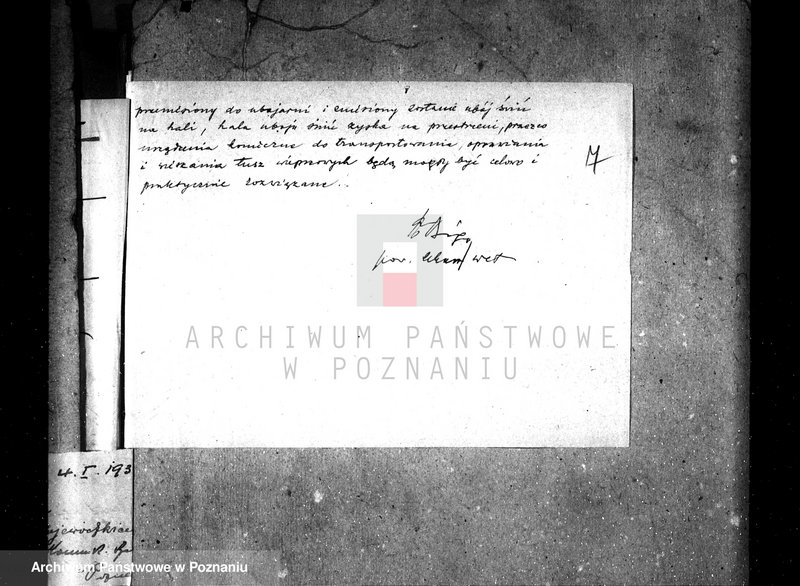 przeniesiony do ubojarni i zniesiony zostanie ubój świń
na hali, hala uboju świń zyska na przestrzeni, przezco
urządzenia konieczne do transportowania, oprawiania
i wieszania tusz wieprzowych będą mogły być celowo i
praktycznie rozwiązane.
17
pow. lekarz wet
ARCHIWUM PAŃSTWOWE
W POZNANIU
4. I. 193
Archiwum Państwowe w Poznaniu